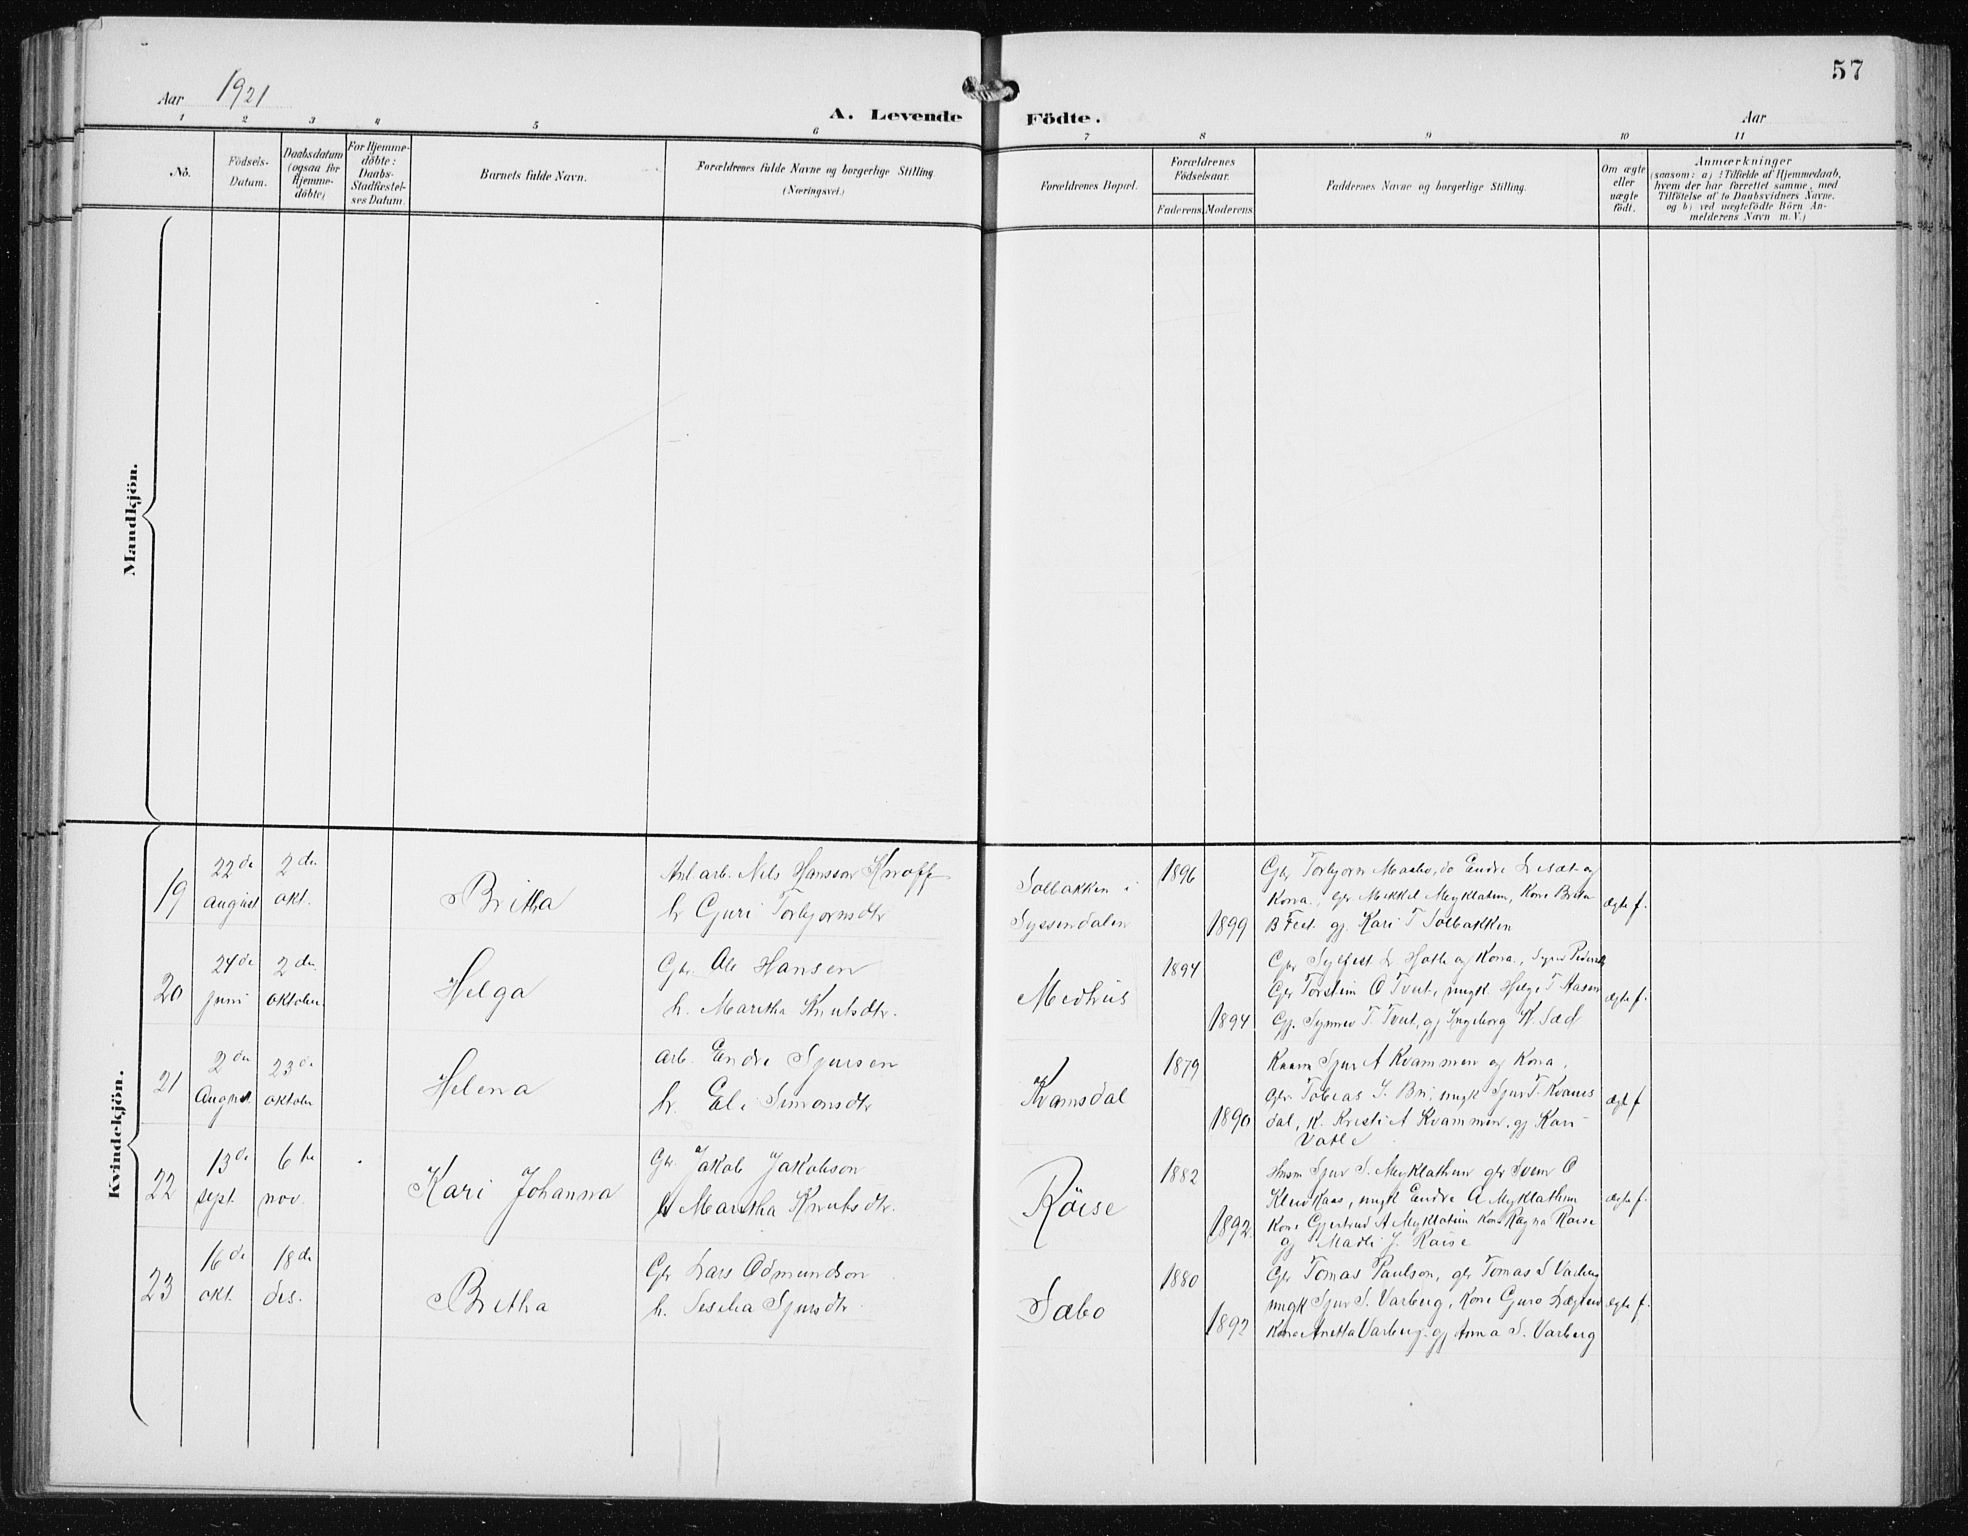 57
Aar 1921
A. Levende Födte.
Aar
1 2 3 4 5 6 7 8 9 10 11
No.
Födsels-Datum.
Daabsdatum (ogsaa for Hjemme-döbte)
For Hjemme-döbte: Daabs-Stadfæstel-ses Datum.
Barnets fulde Navn.
Forældrenes fulde Navne og borgerlige Stilling (Næringsvei.)
Forældrenes Bopæl.
Forældrenes Födselsaar.
Faderens Moderens
Faddernes Navne og borgerlige Stilling.
Om ægte eller uægte födt.
Anmærkninger
(saasom: a) i Tilfælde af Hjemmedaab,
hvem der har forrettet samme, med
Tilföielse af to Daabsvidners Navne,
og b) ved uægtefödte Börn An-
melderens Navn m. V.)
Mandkjön.
Kvindekjön.
19
22de august
2den okt.
Britha
Anl arb. Nils Hansson Knoff
h Guri Torbjørnsdtr
Solbakken i
Syssendalen
1896
1899
Gbr Torbjørn Maabø, do Endre Liset og
Kona, gbr Mikkel Myklatun, Kone Brita
B Feet gj. Kari T Solbakken
ægte f.
20
24de juni
2den oktober
Helga
Gbr. Ole Hansen
h. Maritha Knutsdtr.
Medhus
1894
1894
Gbr Sylfest L Hotle og Kona,
Gbr Torstein O Tveit, ungk. Helge T Aasen
Gj. Synnev T. Tveit, gj Ingeborg K. Sæd
ægte f.
21
2den August
23de oktober
Helena
Arb. Endre Sjursen
h. Eli Simonsdtr
Kvamsdal
1879
1890
Kaarm Sjur A Kvammen og Kona,
gbr Tobias S. Bu, ungk Sjur T. Kvams
dal, K. Kristi A Kvammen, gj Kari
Vatle
ægte f
22
13de sept.
6te nov.
Kari Johanna
Gbr. Jakob Jakobson
h Maritha Knutsdtr.
Röise
1882
1892.
Husm Sjur S. Myklathun gbr Svein O
Kleivkaas, ungk Endre A Myklathun
Kone Gjertrud A Myklatun Kone Ragna Røise
gj Madli J. Røise
ægte f.
23
16de okt.
18de des.
Bretha
Gbr Lars Odmundson
h. Seselia Sjursdtr.
Sæbo
1880
1892
Gbr Tomas Paulson, gbr Tomas S Varberg
ungk Sjur S. Varberg, Kone Guro
Kone Anetta Varberg. gj Anna S. Varberg
ægte f.